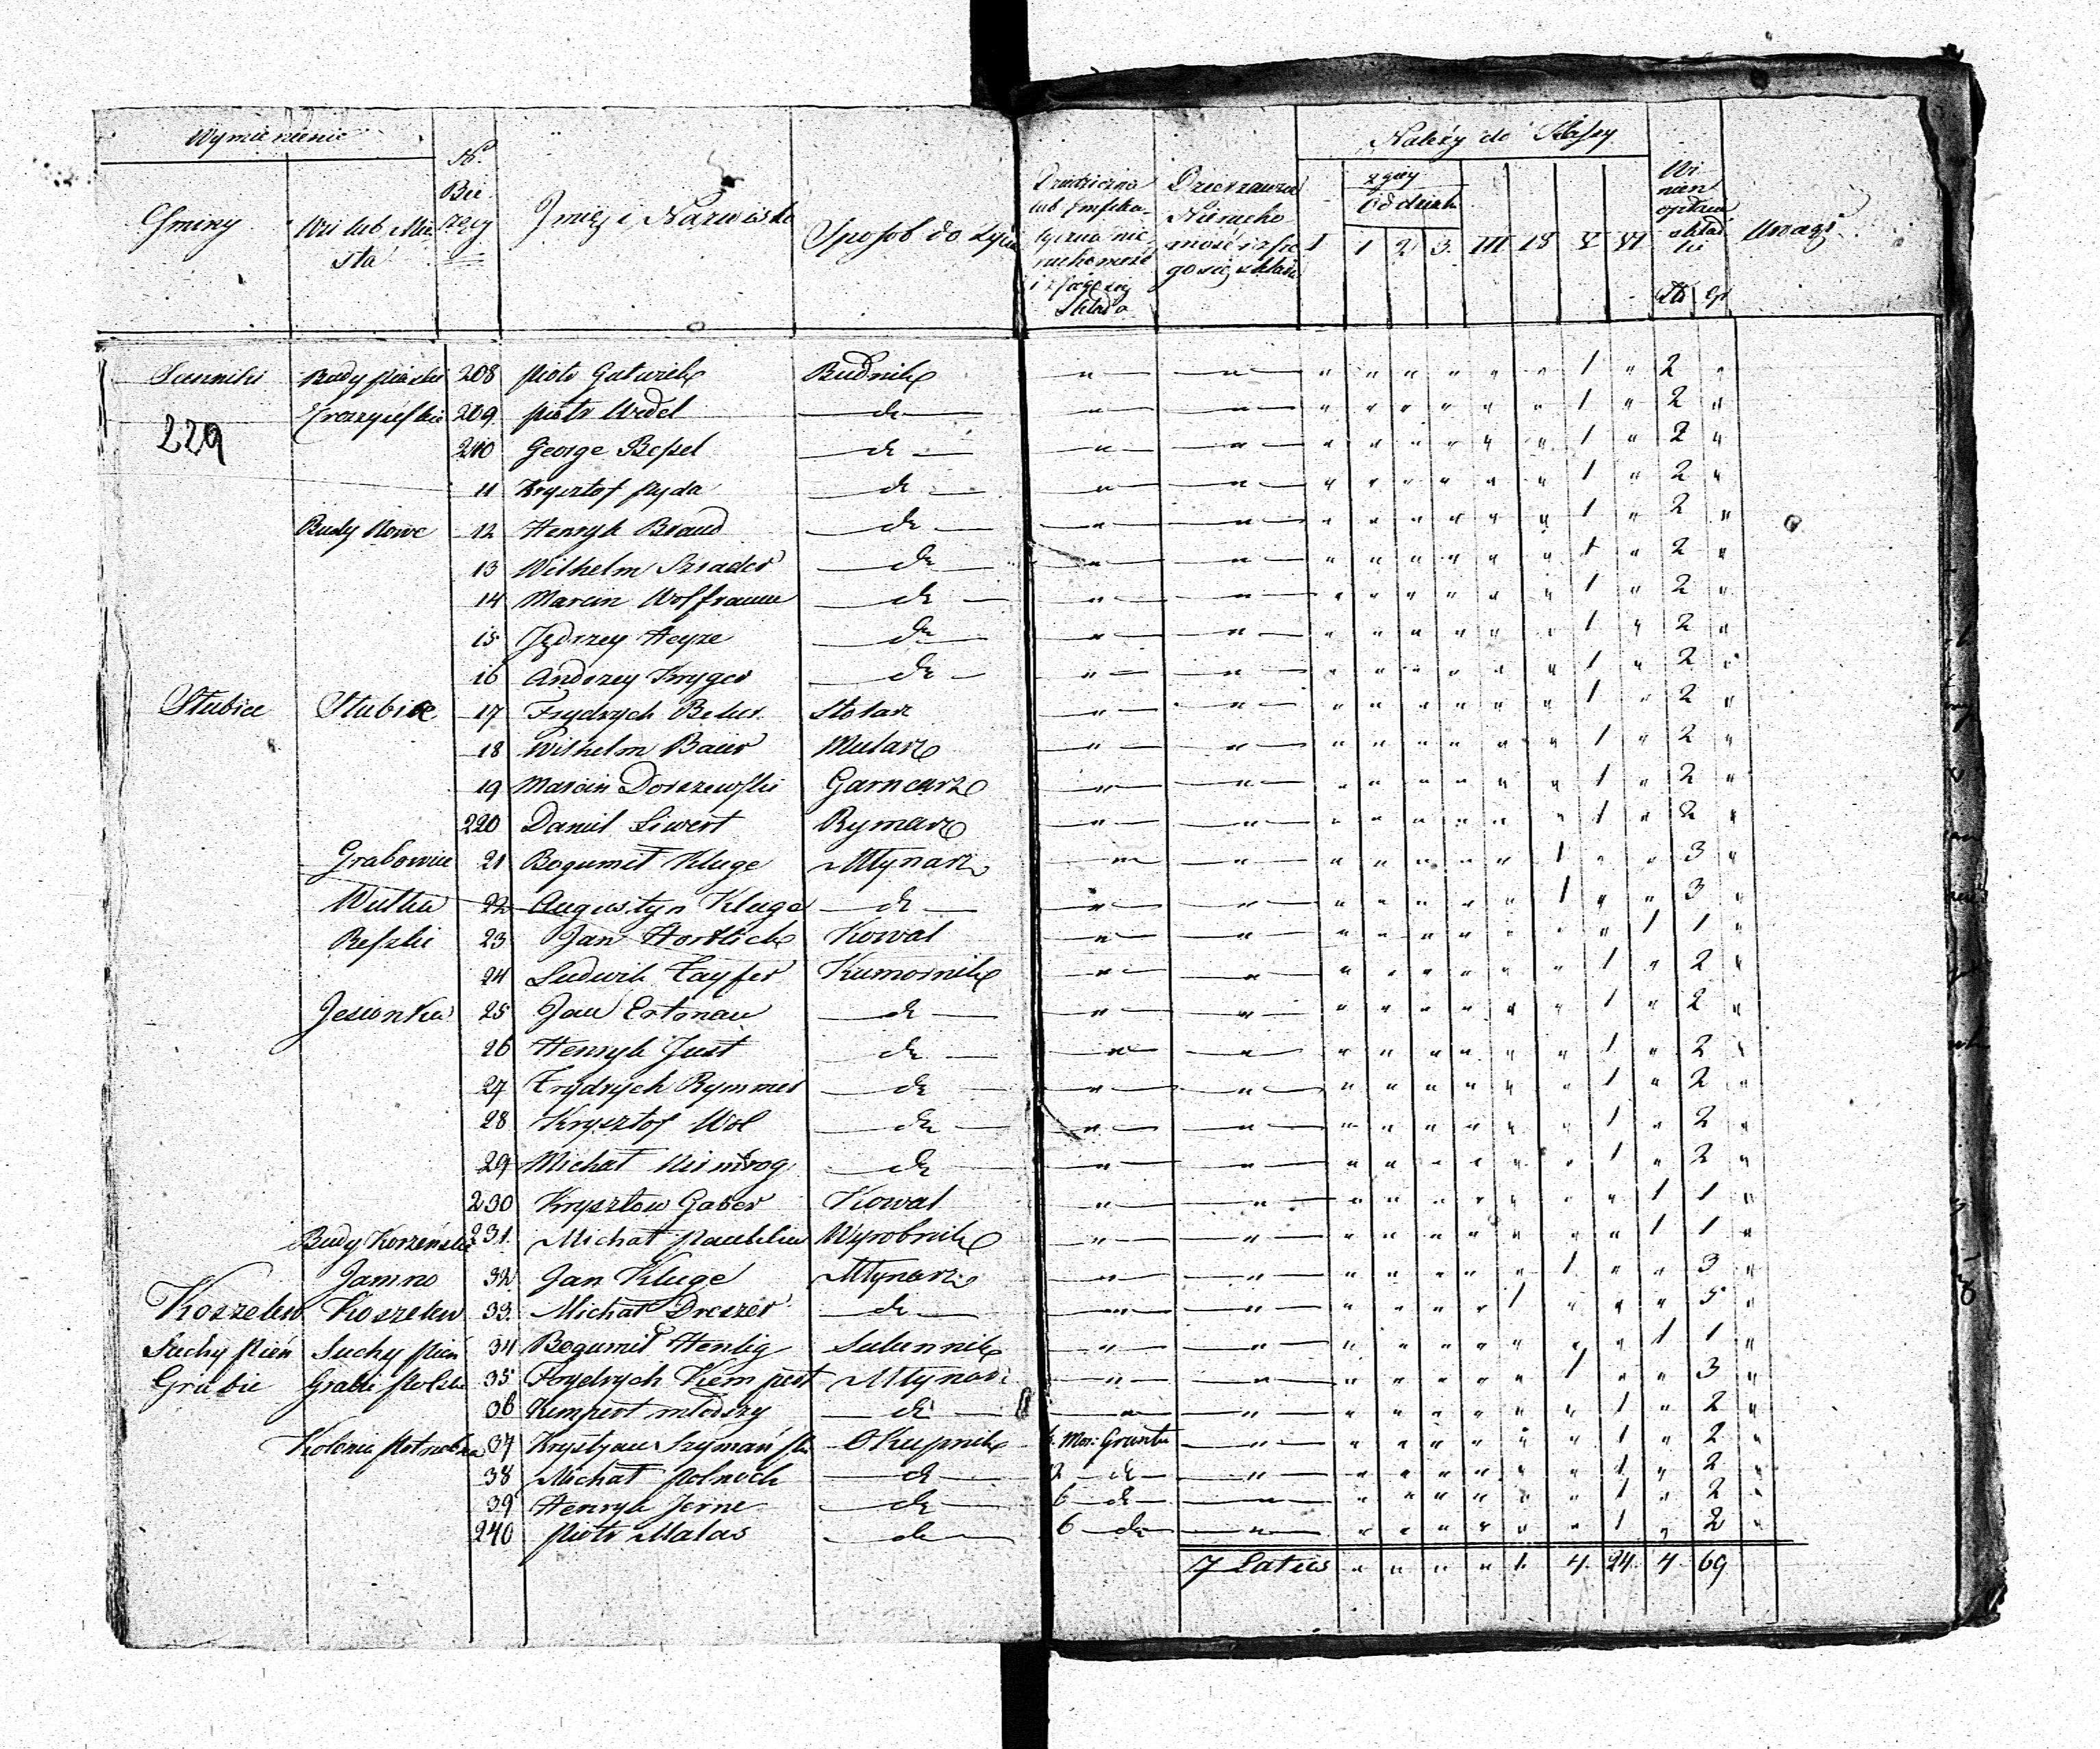 Wymienienie
Gminy
Wsi lub Mia
sta
N.
Bie
żący
Jmię i Nazwisko
Sposób do życia
Dziedziczna
lub Emfiteu-
tyczna nie
ruchomość
i z czego się
składa
Dzierżawna
Nierucho
mość i z cze
go się składa
Należy do Klassy
I
z giey
Oddział
1 2 3
III IV V VI
Wi
nien
opłacać
skład
ki
Zł gr
Uwagi
Sanniki Budy Piaski 208 Piotr Gatwik Budnik " " " " " " " " 1 " 2 "
229
209 Piotr Wedel do " " " " " " " " 1 " 2 "
210 George Bessel do " " " " " " " " 1 " 2 "
11 Krysztof Ryda do " " " " " " " " 1 " 2 "
Budy Nowe 12 Henryk Braud do " " " " " " " " 1 " 2 "
13 Wilhelm Szrader do " " " " " " " " 1 " 2 "
14 Marcin Wolframm do " " " " " " " " 1 " 2 "
15 Jędrzey Heyze do " " " " " " " " 1 " 2 "
16 Andrzey Kryger do " " " " " " " " 1 " 2 "
Słubice Słubice 17 Frydrych Beker Stolarz " " " " " " " " 1 " 2 "
18 Wilhelm Bauer Mularz " " " " " " " " 1 " 2 "
19 Marcin Dorszewski Garncarz " " " " " " " " 1 " 2 "
220 Daniel Siwert Rymarz " " " " " " " " 1 " 2 "
Grabowiec 21 Bogumił Kluge Młynarz " " " " " " " 1 " " 3 "
Wulka 22 Augustyn Kluge do " " " " " " " 1 " " 3 "
Reszki 23 Jan Hortlich Kowal " " " " " " " " " 1 1 "
24 Ludwik Tayfer Kumornik " " " " " " " " 1 " 2 "
Jesionka 25 Jan Ertonau do " " " " " " " " 1 " 2 "
26 Henryk Just do " " " " " " " " 1 " 2 "
27 Frydrych Rymmer do " " " " " " " " 1 " 2 "
28 Krysztof Wol do " " " " " " " " 1 " 2 "
29 Michał Nimtrog do " " " " " " " " 1 " 2 "
230 Krysztow Gaber Kowal " " " " " " " " " 1 1 "
Budy Korzeńskie 231. Michał Wyrobnik " " " " " " " " " 1 1 "
Jamno 32 Jan Kluge Młynarz " " " " " " " 1 " " 3 "
Koszelew Koszelew 33. Michał Dreszer do " " " " " " 1 " " " 5 "
Suchy Pień Suchy Pień 34 Bogumił Henlig Sukennik " " " " " " " " " 1 1 "
Grabie Grabie Polskie 35 Frydrych Kiempert Młynarz " " " " " " " 1 " " 3 "
36 Kempert młodszy do " " " " " " " " 1 " 2 "
Kolonia 37 Krystyan Szymański Okupnik Mor: Gruntu " " " " " " " 1 " 2 "
38 Michał Polnoch do 2 do " " " " " " " 1 " 2 "
39 Henryk Jerne do 6 do " " " " " " " 1 " 2 "
240 Piotr Malas do 6 do " " " " " " " 1 " 2 "
7 Latus " " " " 1. 4. 24. 4 69